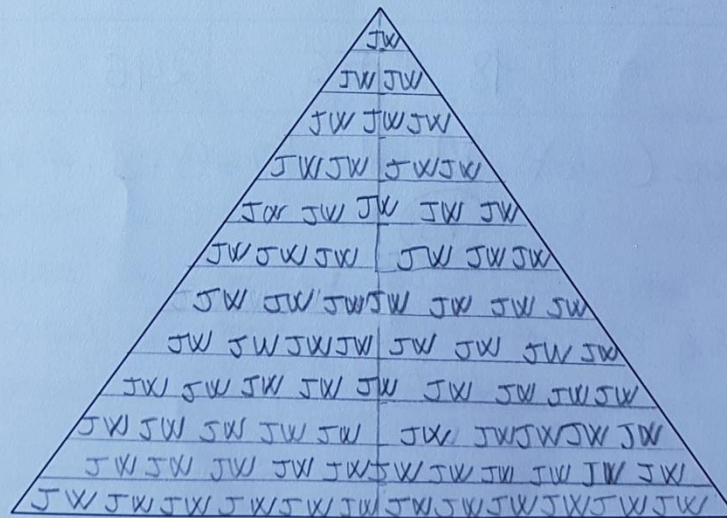 JW
JW JW
JW JW JW
JW JW JW JW
Jar JW JW JW JW
JW JW JW JW JW JW
JW JW JW JW JW JW JW
JW JW JW JW JW JW JW JW
JW JW JW JW JW JW JW JW JW
JW JW JW JW JW JW JW JW JW JW
JW JW JW JW JW JW JW JW JW JW JW
JW JW JW JW JW JW JW JW JW JW JW JW